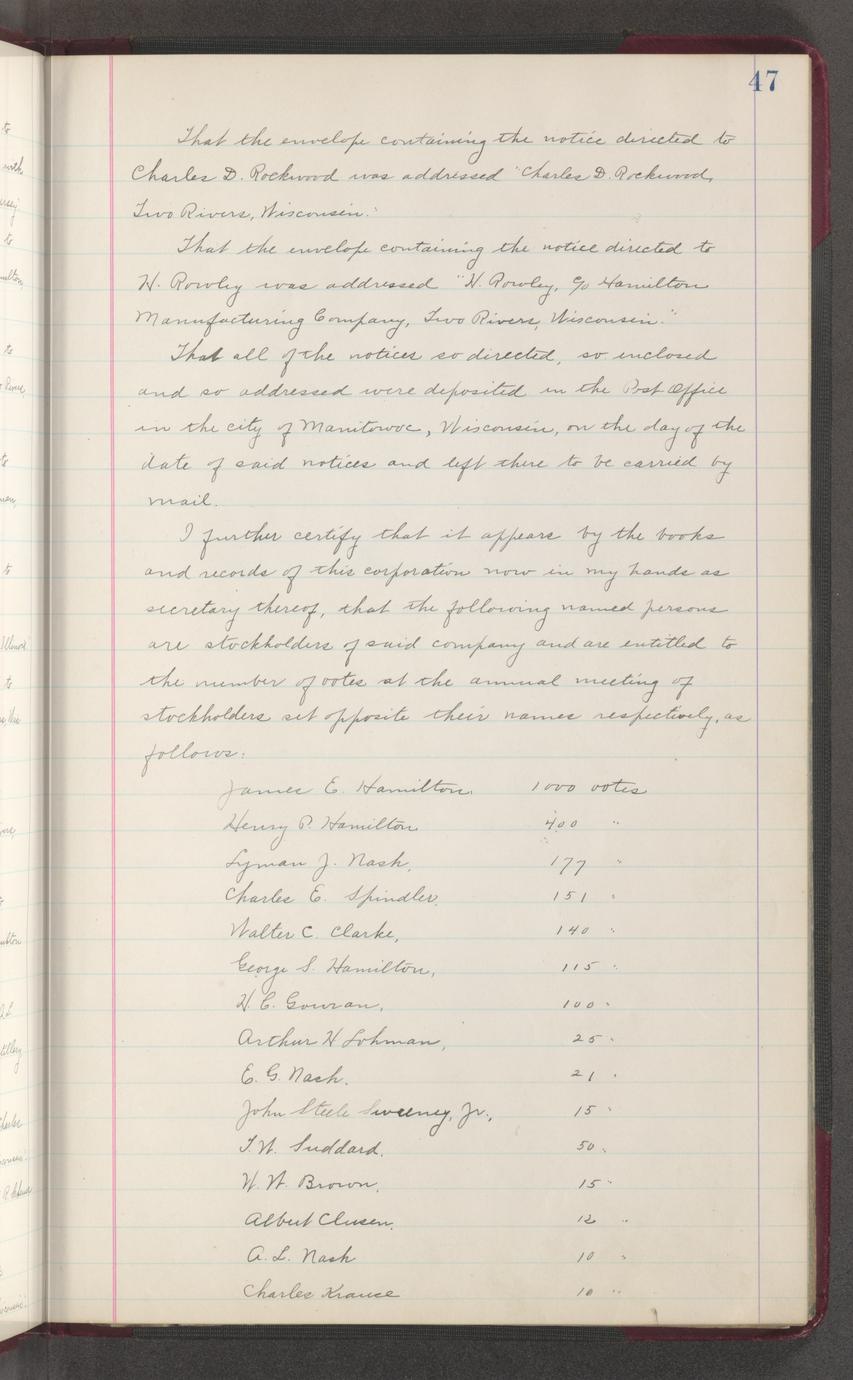 47
That the envelope containing the notice directed to
Charles D. Rockwood was addressed "Charles D. Rockwood,
Two Rivers, Wisconsin."
That the envelope containing the notice directed to
W. Rowley was addressed "W. Rowley, c/o Hamilton
Manufacturing Company, Two Rivers, Wisconsin."
That all of the notices so directed, so enclosed
and so addressed were deposited in the Post Office
in the city of Manitowoc, Wisconsin, on the day of the
date of said notices and left there to be carried by
mail.
I further certify that it appears by the books
and records of this corporation now in my hands as
secretary thereof, that the following named persons
are stockholders of said company and are entitled to
the number of votes at the annual meeting of
stockholders set opposite their names respectively, as
follows:
James E. Hamilton, 1000 votes
Henry P. Hamilton 400 "
Lyman J. Nash, 177 "
Charles E. Spindler, 151 "
Walter C. Clarke, 140 "
George S. Hamilton, 115 "
W. C. Gowran, 100 "
Arthur H Lohman, 25 "
E. G. Nash. 21 "
John Steele Sweeney, Jr., 15 "
T. W. Suddard. 50 "
W. W. Brown, 15 "
Albert Clusen, 12 "
A. L. Nash 10 "
Charles Krause 10 "